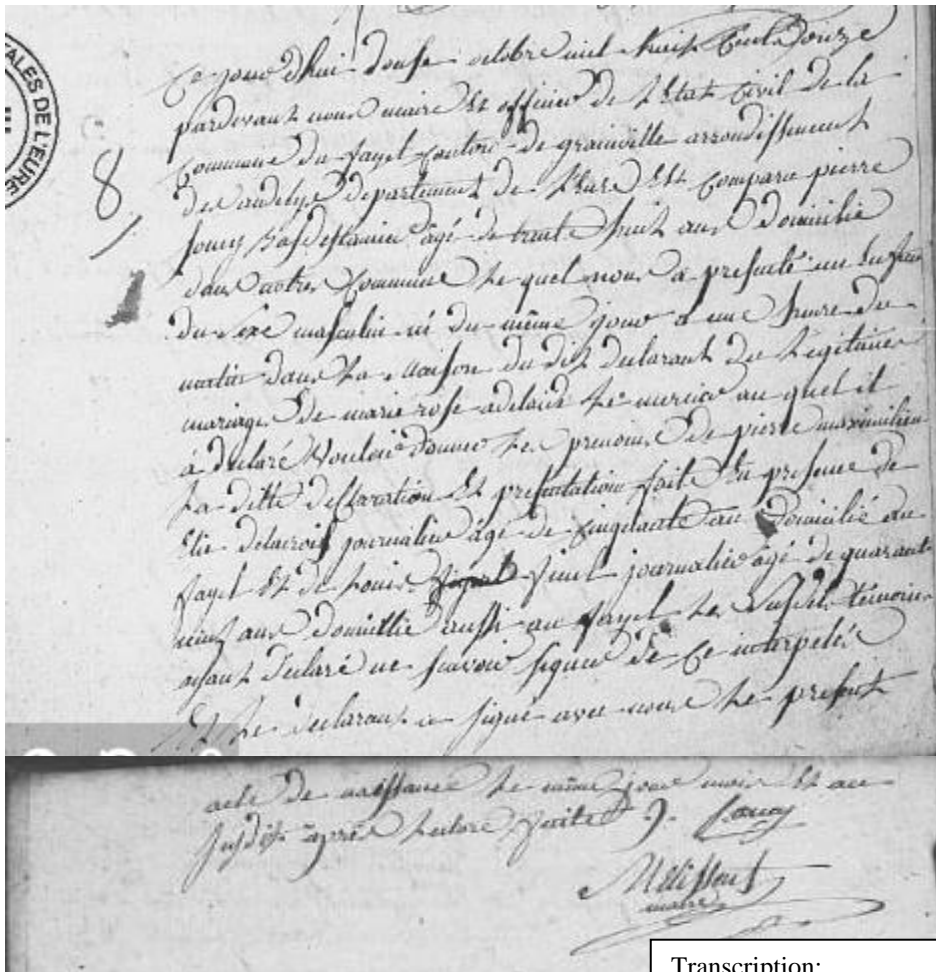 ALES DE L'EURE
8
Ce jour dhui douse octobre mil huit Cent Donze
pardevant nous maire Et officier de L'Etat Civil de la
Commune du fayel Canton de grainville arrondissement
des andelys departement de L'Eure Est Comparu pierre
age de trente huit ans Domicilié
dans notre Commune Le quel nous a presenté un Enfant
du sexe masculin né du même jour a une heure du
matin dans La maison du dit declarant du Legitime
mariage De marie rose adelaide Le auquel il
à declaré Vouloir Donner Les prenoms De pierre maximilien
La ditte declaration Et presentation faite En presence de
Elie delacroix journalier âgé de Cinquante ans Domicilié au
fayel Et de Louis journalier âgé de quarante
neuf ans Domicillié aussi au fayel Les Susdits témoins
ayant Declaré ne scavoir signer De Ce interpelés
Et Le declarant a signé avec nous Le present
acte De naissance Le même jour mois Et an
Susdit après Lecture faitte
maire
Transcription: